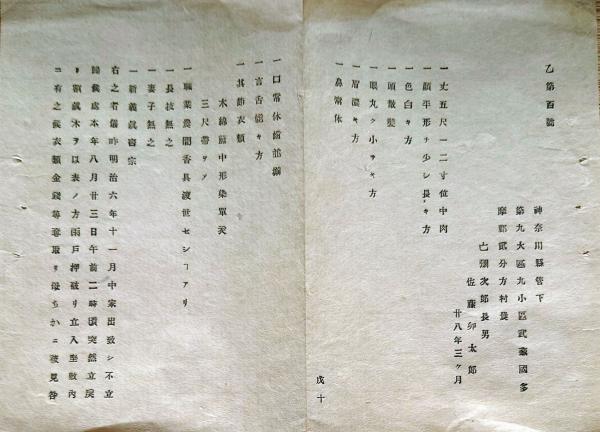 乙第百號
神奈川縣管下
第九大區九小區武藏國多
摩郡貳分方村農
亡彌次郎長男
佐藤卯太郎
廿八年三ケ月
一丈五尺一二寸位中肉
一顏平形ニ少シ長キ方
一色白キ方
一頭散髮
一眼丸ク小サキ方
一眉濃キ方
一鼻常体
戊十
一口常体齒並揃
一言舌低キ方
一其節衣類
木綿藍中形染單衣
三尺帶ヲ〆
一職業農間香具渡世セシコアリ
一長技無之
一妻子無之
一新義眞言宗
右之者儀昨明治六年十一月中家出致シ不立
歸候處本年八月廿三日午前二時頃突然立戾
リ割薪木ヲ以表ノ方雨戸押破リ立入座敷內
ニ有之候衣類金錢等奪取リ母ちかニ被見咎